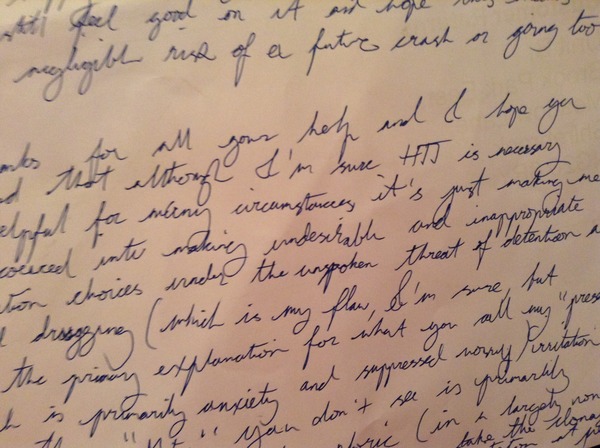 still feel good on it and hope
negligible risk of a future crash or going too
for all your help and I hope you
that although I'm sure HTT is necessary
helpful for many circumstances it's just making me
coerced into making undesirable and inappropriate
choices under the unspoken threat of detention
drugging (which is my flaw, I'm sure, but
the primary explanation for what you call my "press
is primarily anxiety and suppressed worry/irritation
you don't see is primarily
(in a largely non
take the